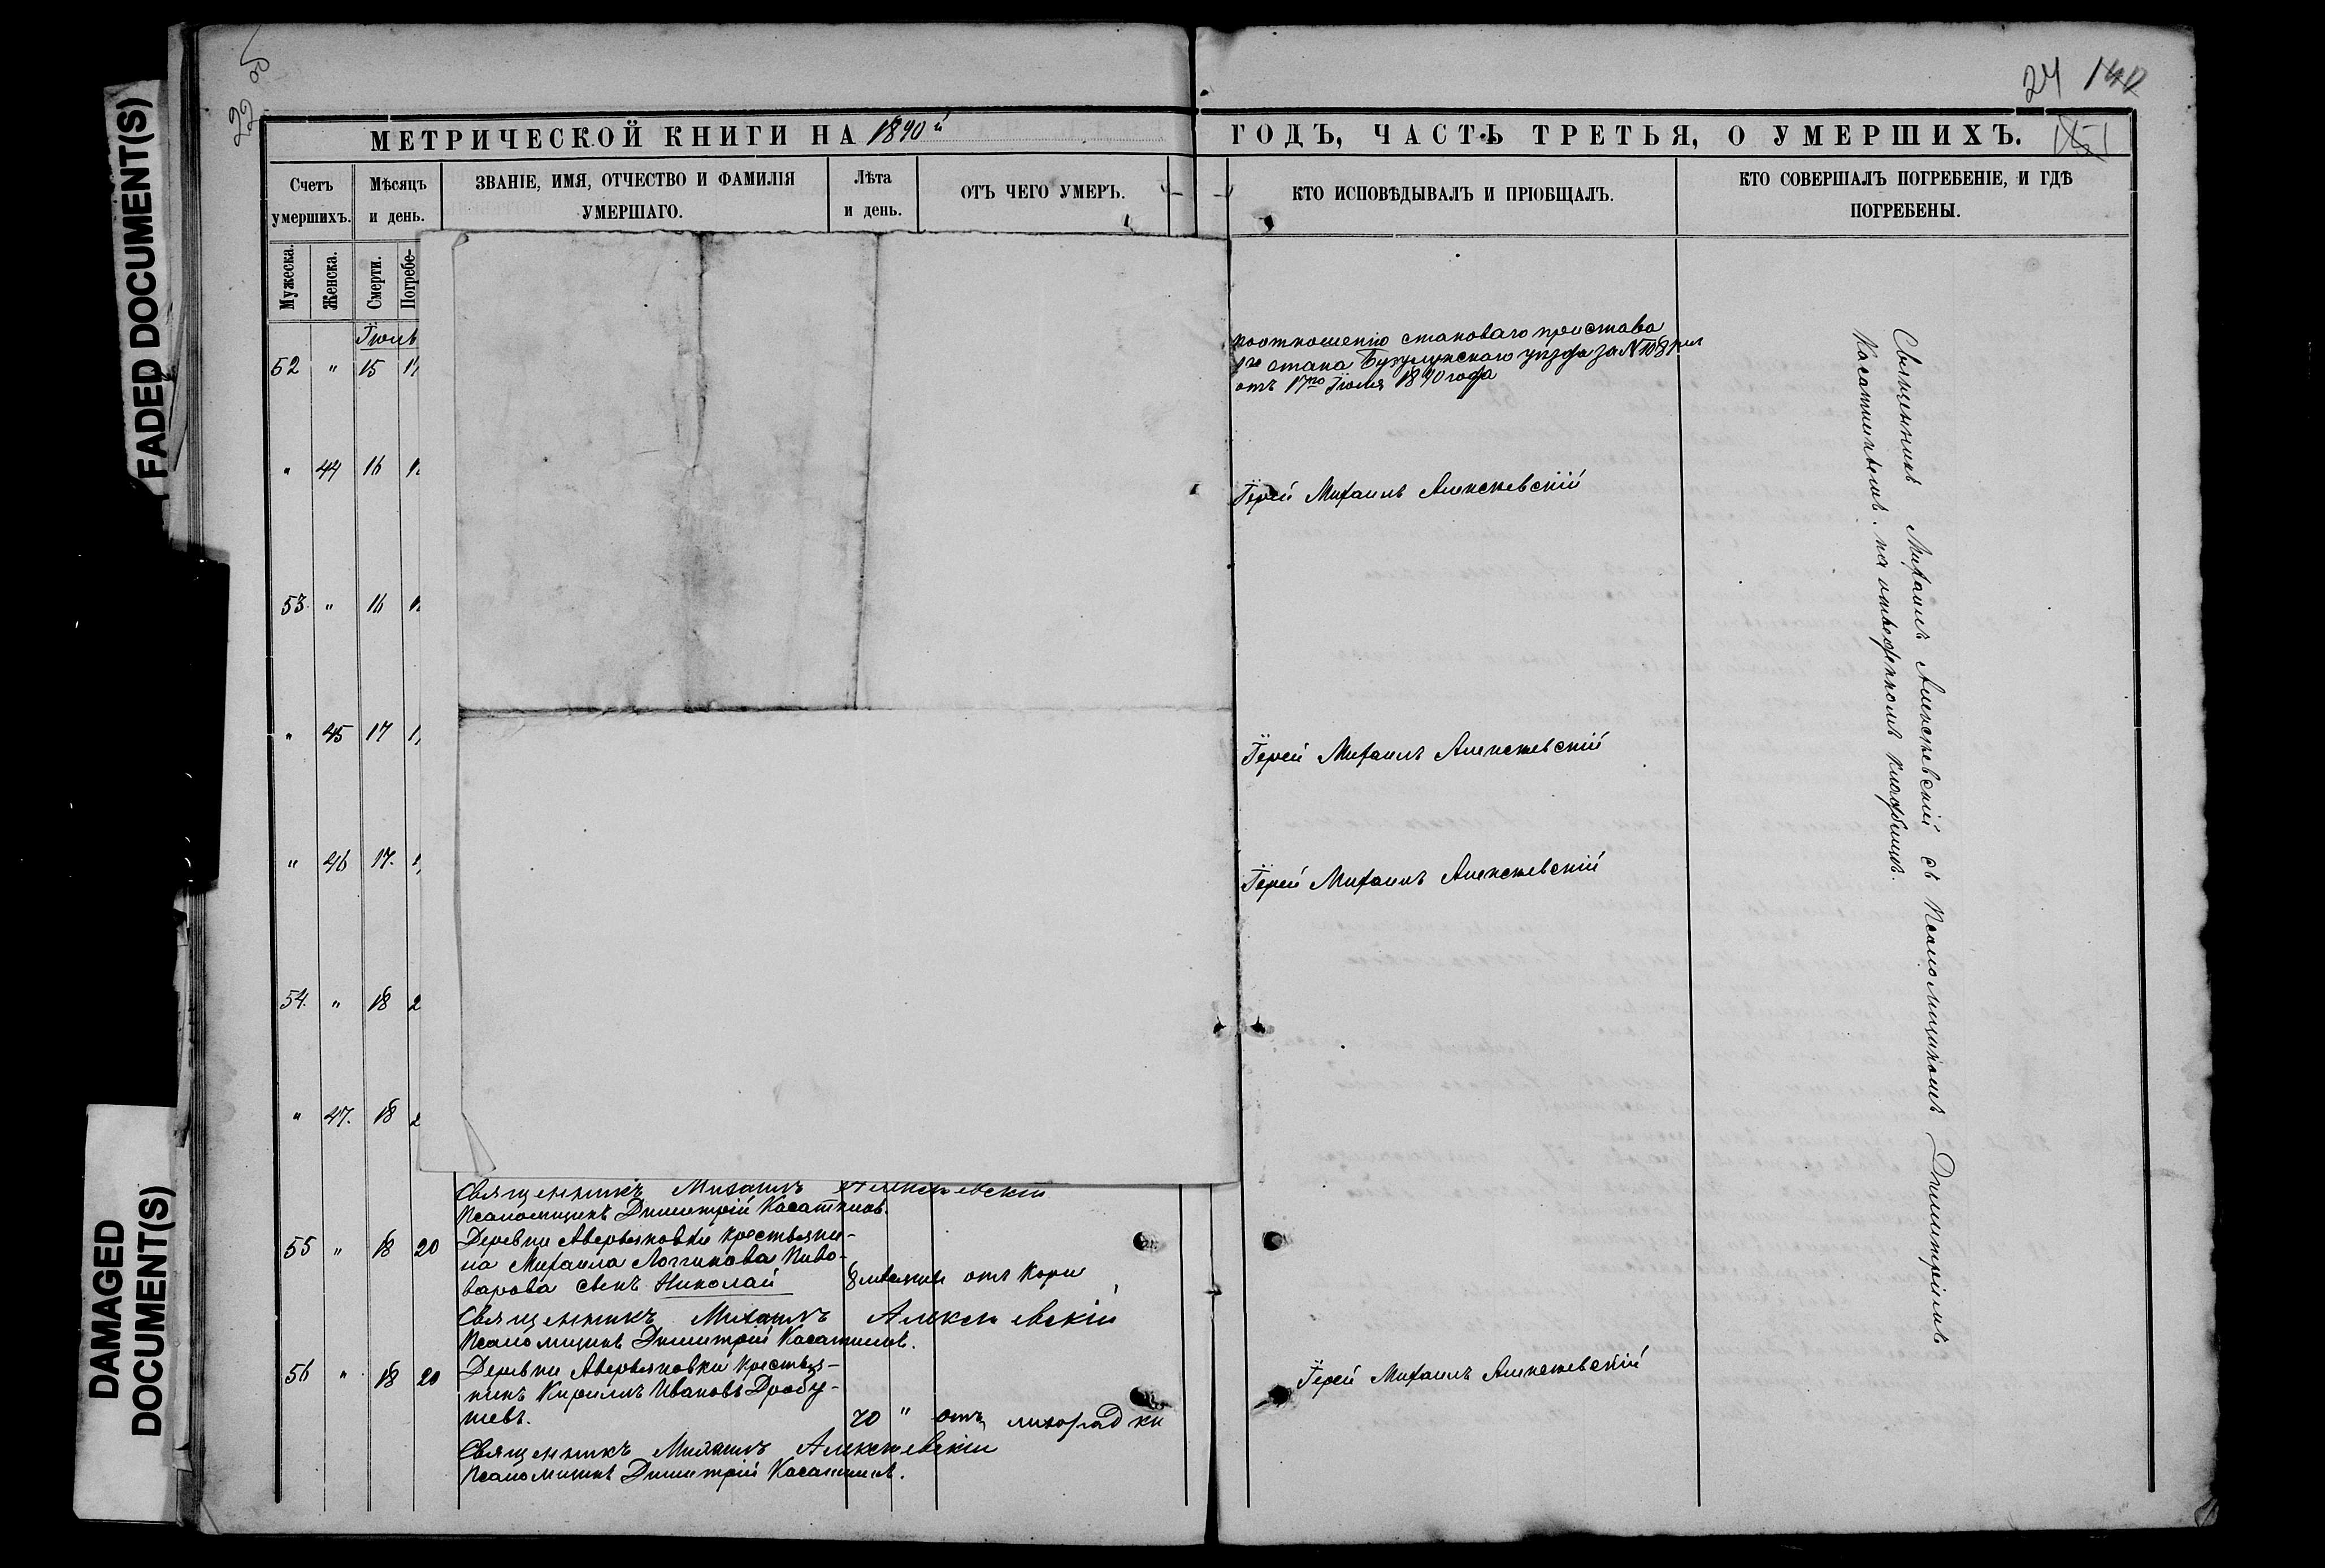 FADED DOCUMENT(S)
DAMAGED
DOCUMENT(S)
22
24 140
МЕТРИЧЕСКОЙ КНИГИ НА 1890й
ГОДЪ, ЧАСТЬ ТРЕТЬЯ, О УМЕРШИХЪ. 151
Счетъ умершихъ.
Мѣсяцъ и день.
ЗВАНІЕ, ИМЯ, ОТЧЕСТВО И ФАМИЛІЯ УМЕРШАГО.
Лѣта и день.
ОТЪ ЧЕГО УМЕРЪ.
КТО ИСПОВѢДЫВАЛЪ И ПРІОБЩАЛЪ.
КТО СОВЕРШАЛЪ ПОГРЕБЕНІЕ, И ГДѢ ПОГРЕБЕНЫ.
Мужеска.
Женска.
Смерти.
Погребе-
Іюль
52 " 15
поотношенію становаго пристава
1го стана Бузулукскаго уѣзда за №
отъ 17го Іюля 1890 года
" 44 16
Іерей Михаилъ Алексѣевскій
53 " 16
" 45 17
Іерей Михаилъ Алексѣевскій
" 46 17.
Іерей Михаилъ Алексѣевскій
54. " 18 2
" 47. 18 2
Священникъ Михаилъ Алексѣевскій
Псаломщикъ Димитрій Касаткинъ.
55 " 18 20 Деревни Аверьяновки крестьяни-
на Михаила Логгинова Пиво-
варова сынъ Николай 8 мѣсяцев отъ Кори
Священникъ Михаилъ Алексѣевскій
Псаломщикъ Димитрій Касаткинъ.
56 " 18 20 Деревни Аверьяновки крестья-
нинъ Кириллъ Ивановъ Дробу-
шевъ. 70 " отъ лихорадки
Іерей Михаилъ Алексѣевскій
Священникъ Михаилъ Алексѣевскій
Псаломщикъ Димитрій Касаткинъ.
Священникъ Михаилъ Алексѣевскій съ Псаломщикомъ Димитріемъ
Касаткинымъ. на отведенномъ кладбищѣ.